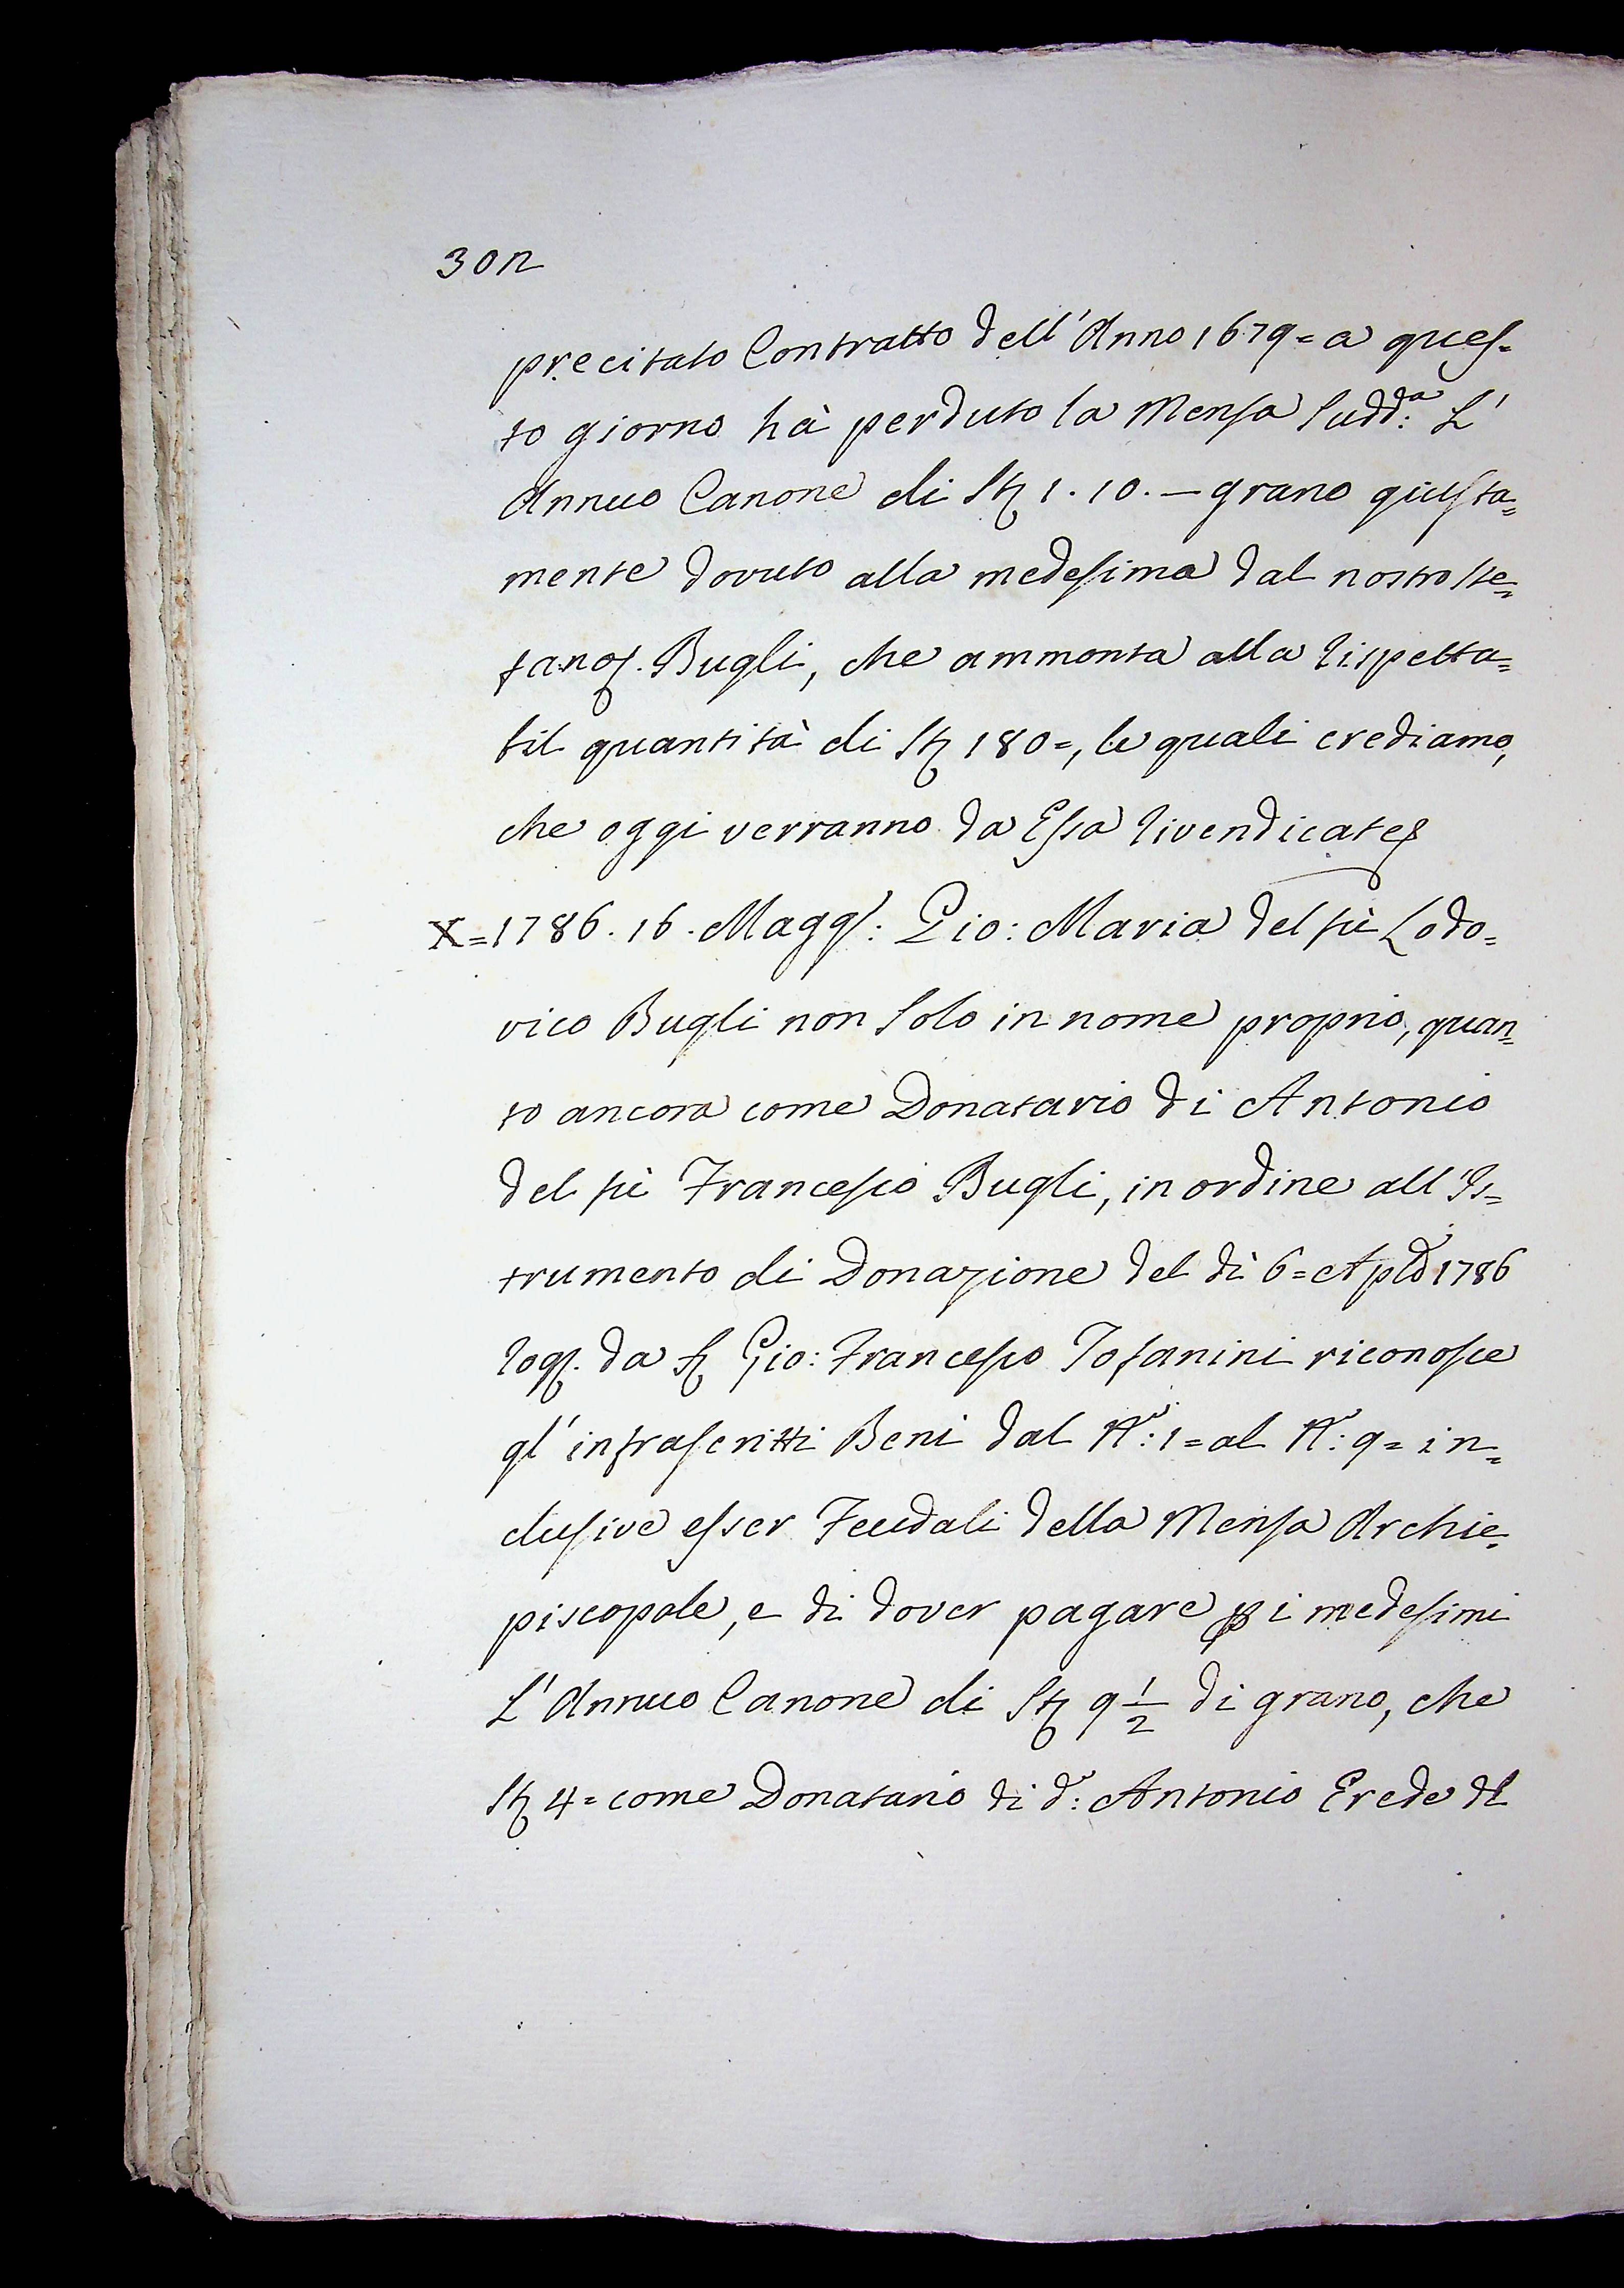 302
precitato Contratto dell'Anno 1679= a ques=
to giorno hà perduto la Mensa Sudd:ª L'
Annuo Canone di St 1. 10. — grano giusta=
mente dovuto alla medesima dal nostro Ste=
fano. Bugli, che ammonta alla rispetta=
bil quantità di St 180=, le quali crediamo,
che oggi verranno da Essa rivendicate
X=1786. 16. Magg: Gio: Maria del fù Lodo=
vico Bugli non Solo in nome proprio, quan=
to ancora come Donatario di Antonio
del fù Francesco Bugli, in ordine all'Is=
trumento di Donazione del dì 6= Aple 1786
rog. da S Gio: Francesco Tofanini riconosce
gl'infrascritti Beni dal N:º 1= al N:º 9= in=
clusive esser Feudali della Mensa Archie=
piscopale, e di dover pagare p i medesimi
L'Annuo Canone di St 9 1/2 di grano, che
St 4= come Donatario di d:º Antonio Erede dl